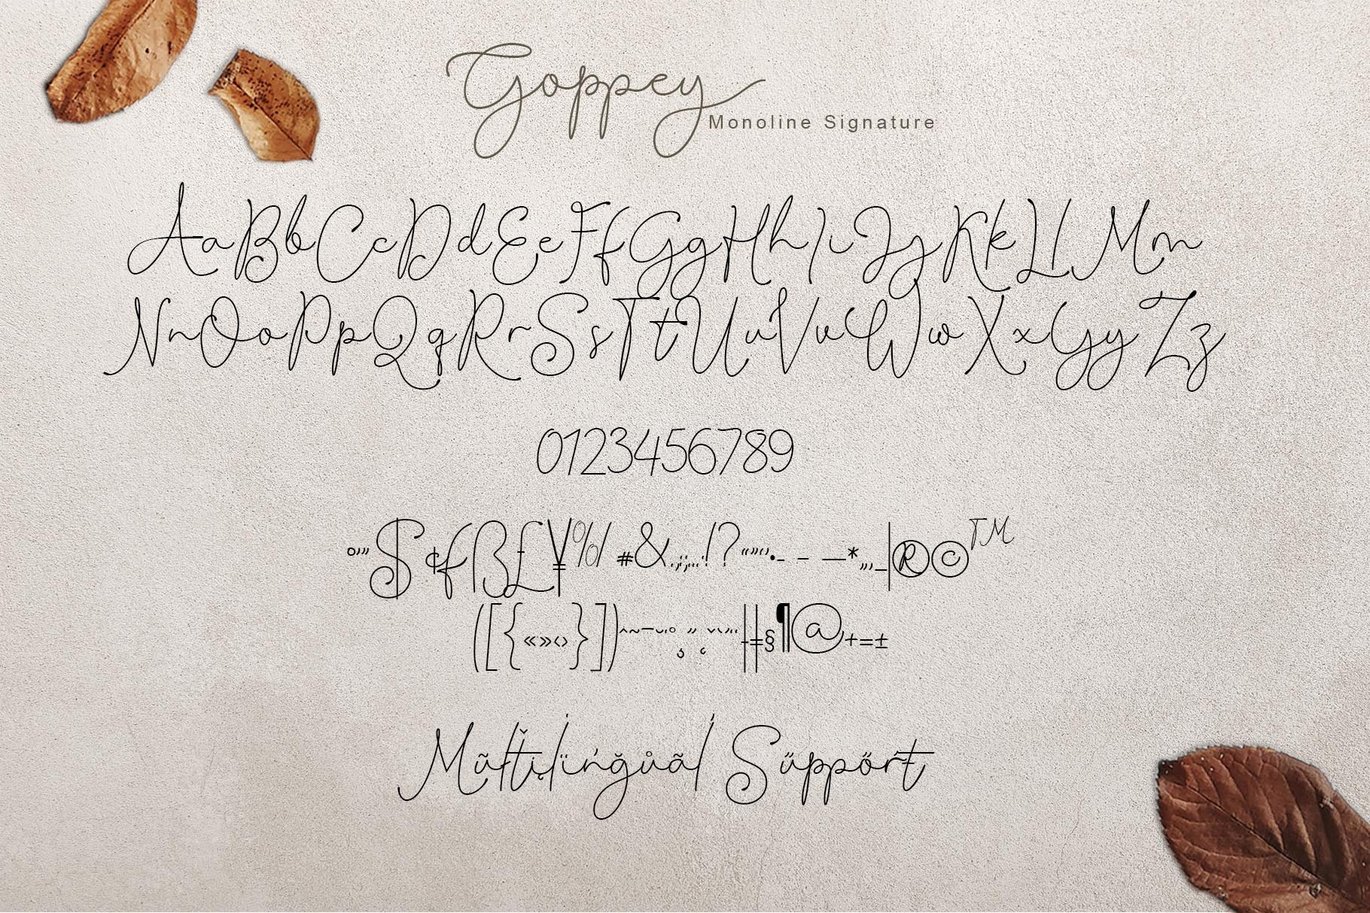 Goppey
Monoline Signature
AaBbCcDdEeFfGgHhIiJjKkLlMm
NnOoPpQqRrSsTtUuVvWwXxYyZz
0123456789
$¢ƒß£¥%/#&.,:;...!?“”‘’•- – —*„‚_|®©™
([{«»‹›}])^~¯˘˙˚ ˝ ˇ †‡§¶@+=±
Mũľťįlïńğůãĺ Sűppőřt